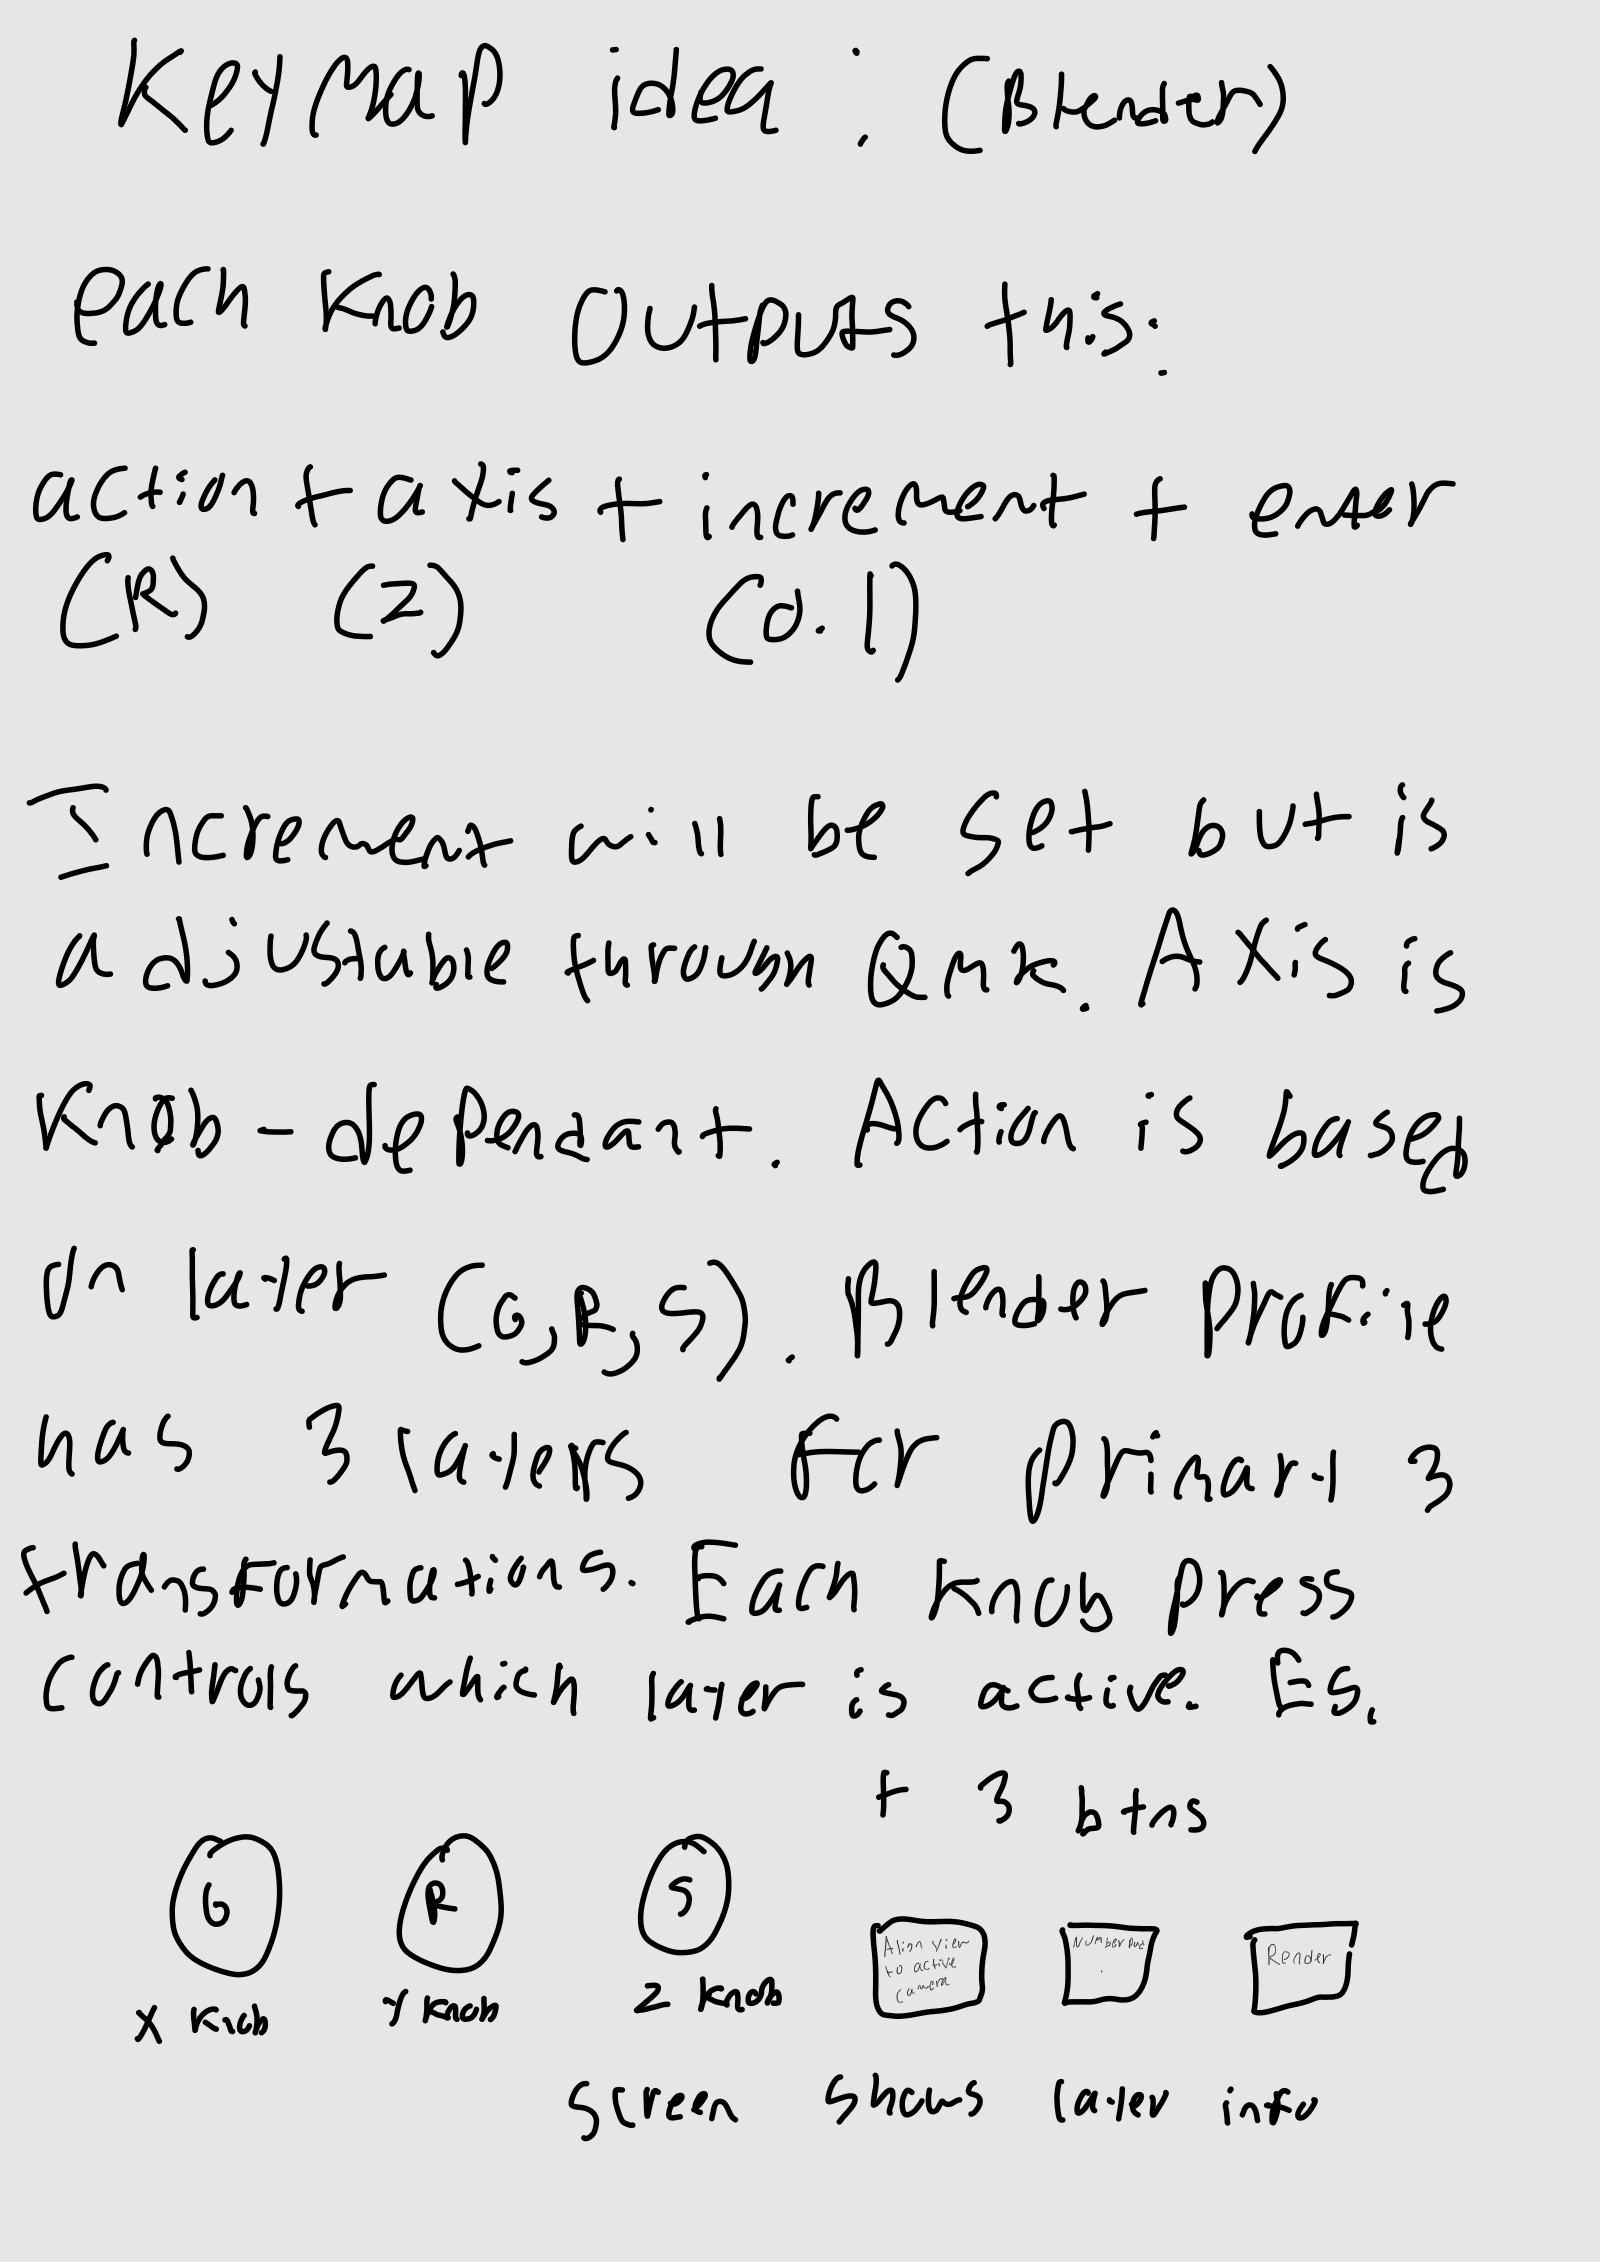 Keymap idea : (Blender)
each knob outputs this:
action + axis + increment + enter
(R) (Z) (0.1)
Increment will be set but is
adjustable through Qmk. Axis is
Knob-dependant. Action is based
on layer (G,R,S). Blender profile
has 3 layers for primary 3
transformations. Each knob press
controls which layer is active. Eg.
+ 3 btns
G R S
Align view
to active
camera
Number Pad
.
Render
X Knob Y Knob Z Knob
Screen shows layer info